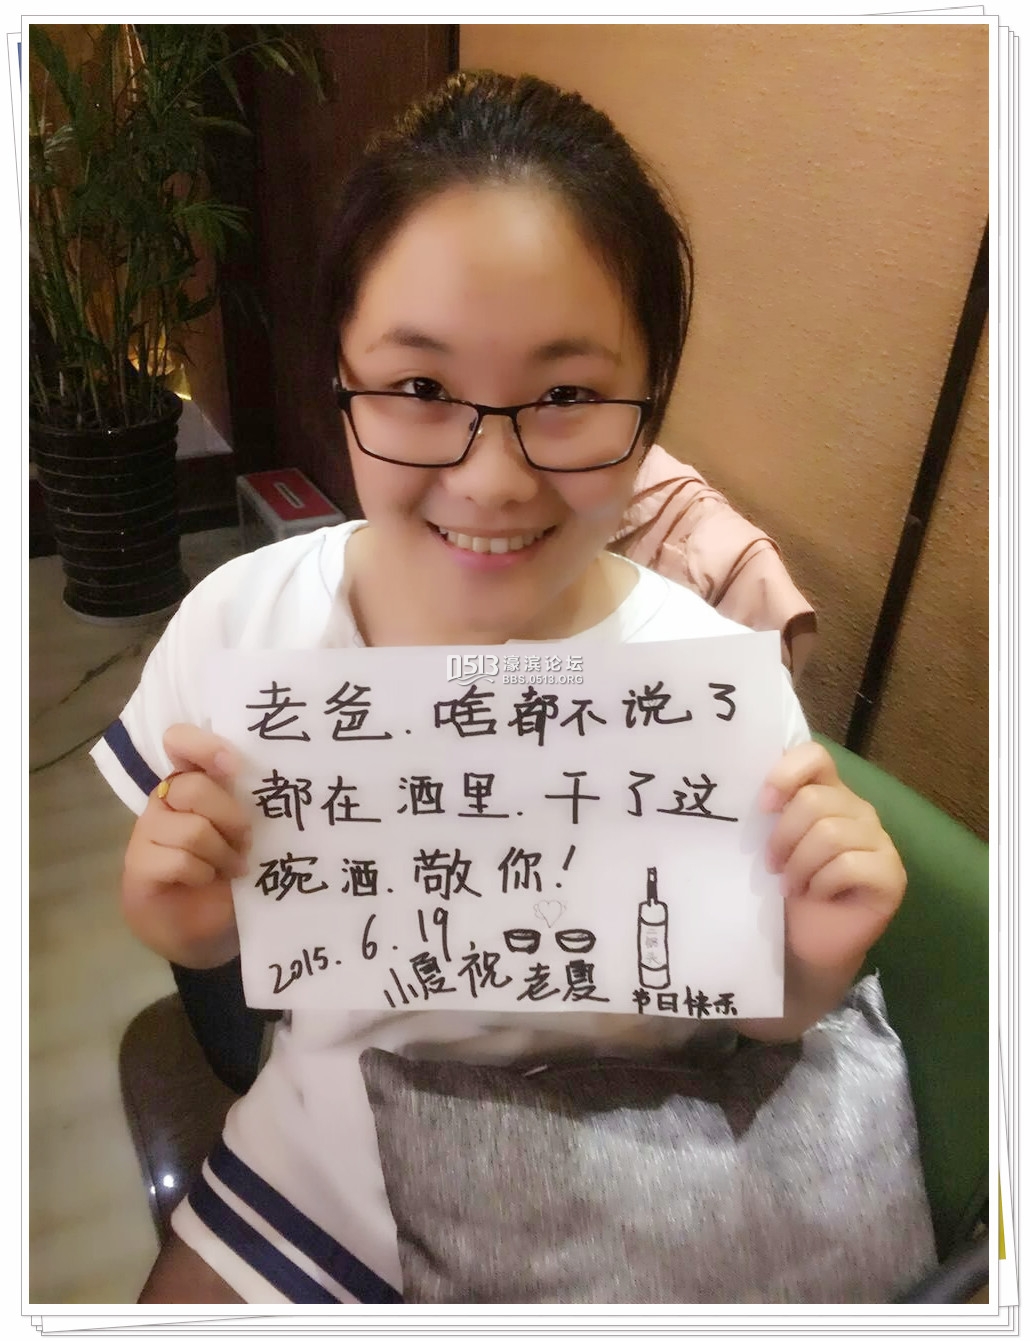 0513 濠滨论坛
BBS.0513.ORG
老爸.啥都不说了
都在酒里.干了这
碗酒.敬你!
2015.6.19.
小夏祝老夏
二锅头
节日快乐